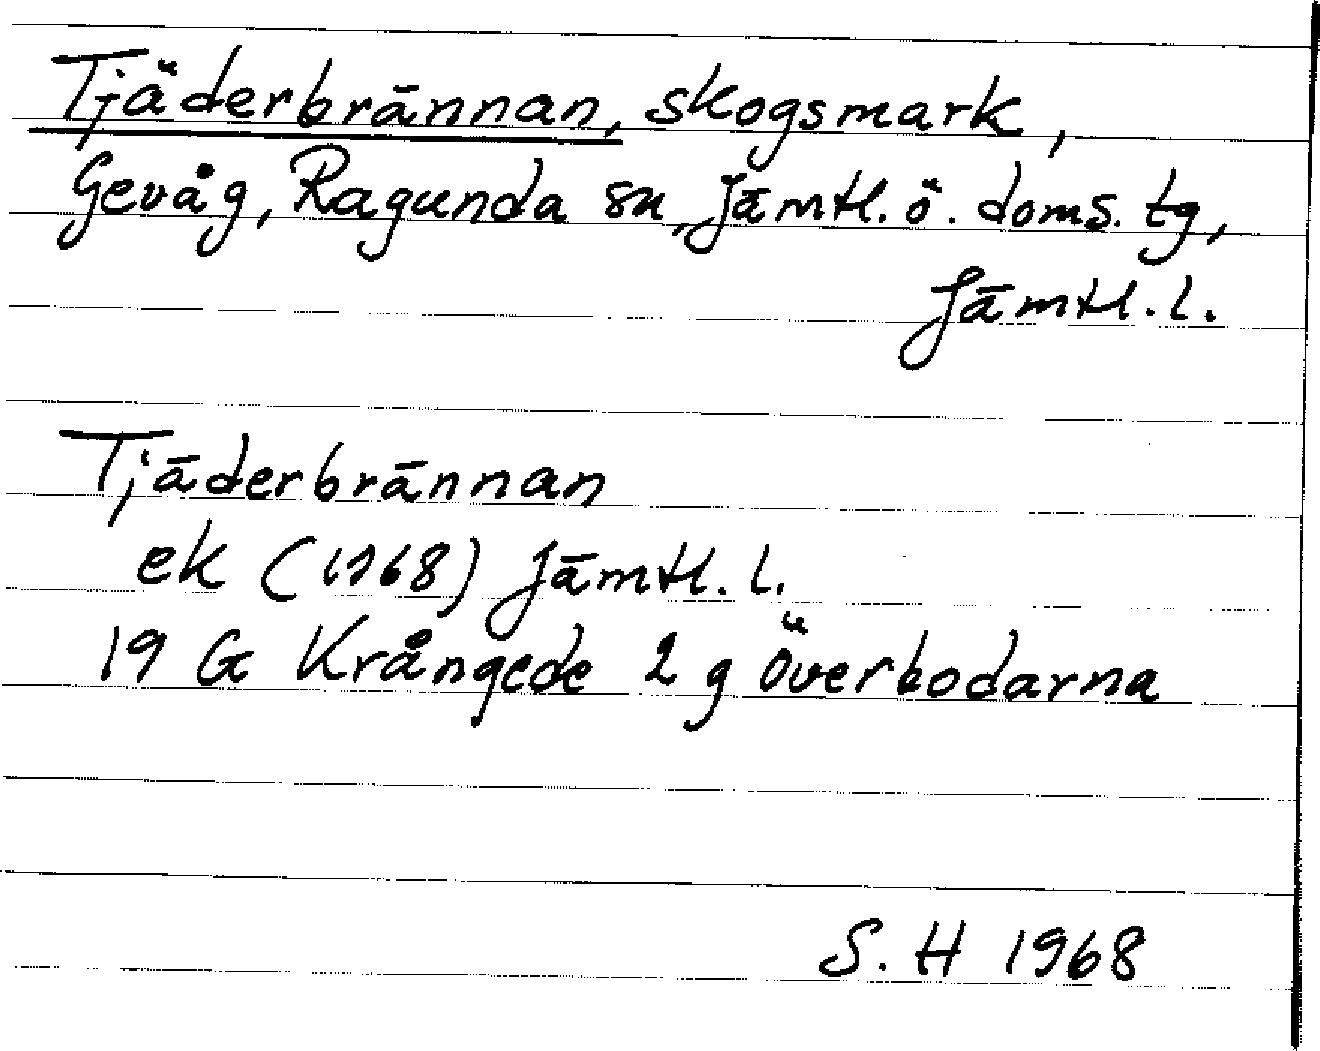 Tjäderbrännan, skogsmark,
Gevåg, Ragunda sn, Jämtl. ö. doms. tg,
Jämtl. l.
Tjäderbrännan
ek (1968) Jämtl. l.
19 G Krångede 2 g Överbodarna
S. H 1968